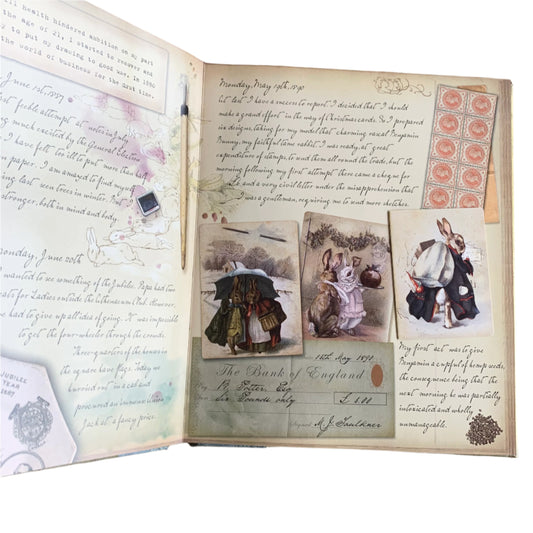 ill health hindered ambition on my part
the age of 21, I started to recover and
to put my drawing to good use. In 1890
the world of business for the first time.
June 1st, 1887
feeble attempt at noticing July
much excited by the General Election
I have felt too ill to put more than half
paper. I am amazed to find myself
last seen trees in winter.
stronger, both in mind and body.
Monday, June 20th
wanted to see something of the Jubilee. Papa had two
seats for Ladies outside the Athenaeum Club. However,
we had to give up all idea of going. It was impossible
to get the four-wheeler through the crowds.
Three-quarters of the houses in
the square have flags. Today we
hurried out in a cab and
procured an immense Union
Jack at a fancy price.
JUBILEE
YEAR
1887
Monday, May 19th, 1890
At last I have a success to report. I decided that I should
make a grand effort in the way of Christmas cards. So I prepared
six designs, taking for my model that charming rascal Benjamin
Bunny, my faithful tame rabbit. I was ready, at great
expenditure of stamps, to send them all round the trade, but the
morning following my first attempt there came a cheque for
£6 and a very civil letter under the misapprehension that
I was a gentleman, requiring me to send more sketches.
16th May 1890
The Bank of England
Pay B. Potter, Esq
Six Pounds only
£ 6.00
Signed M. J. Faulkner
My first act was to give
Benjamin a cupful of hemp seeds,
the consequence being that the
next morning he was partially
intoxicated and wholly
unmanageable.